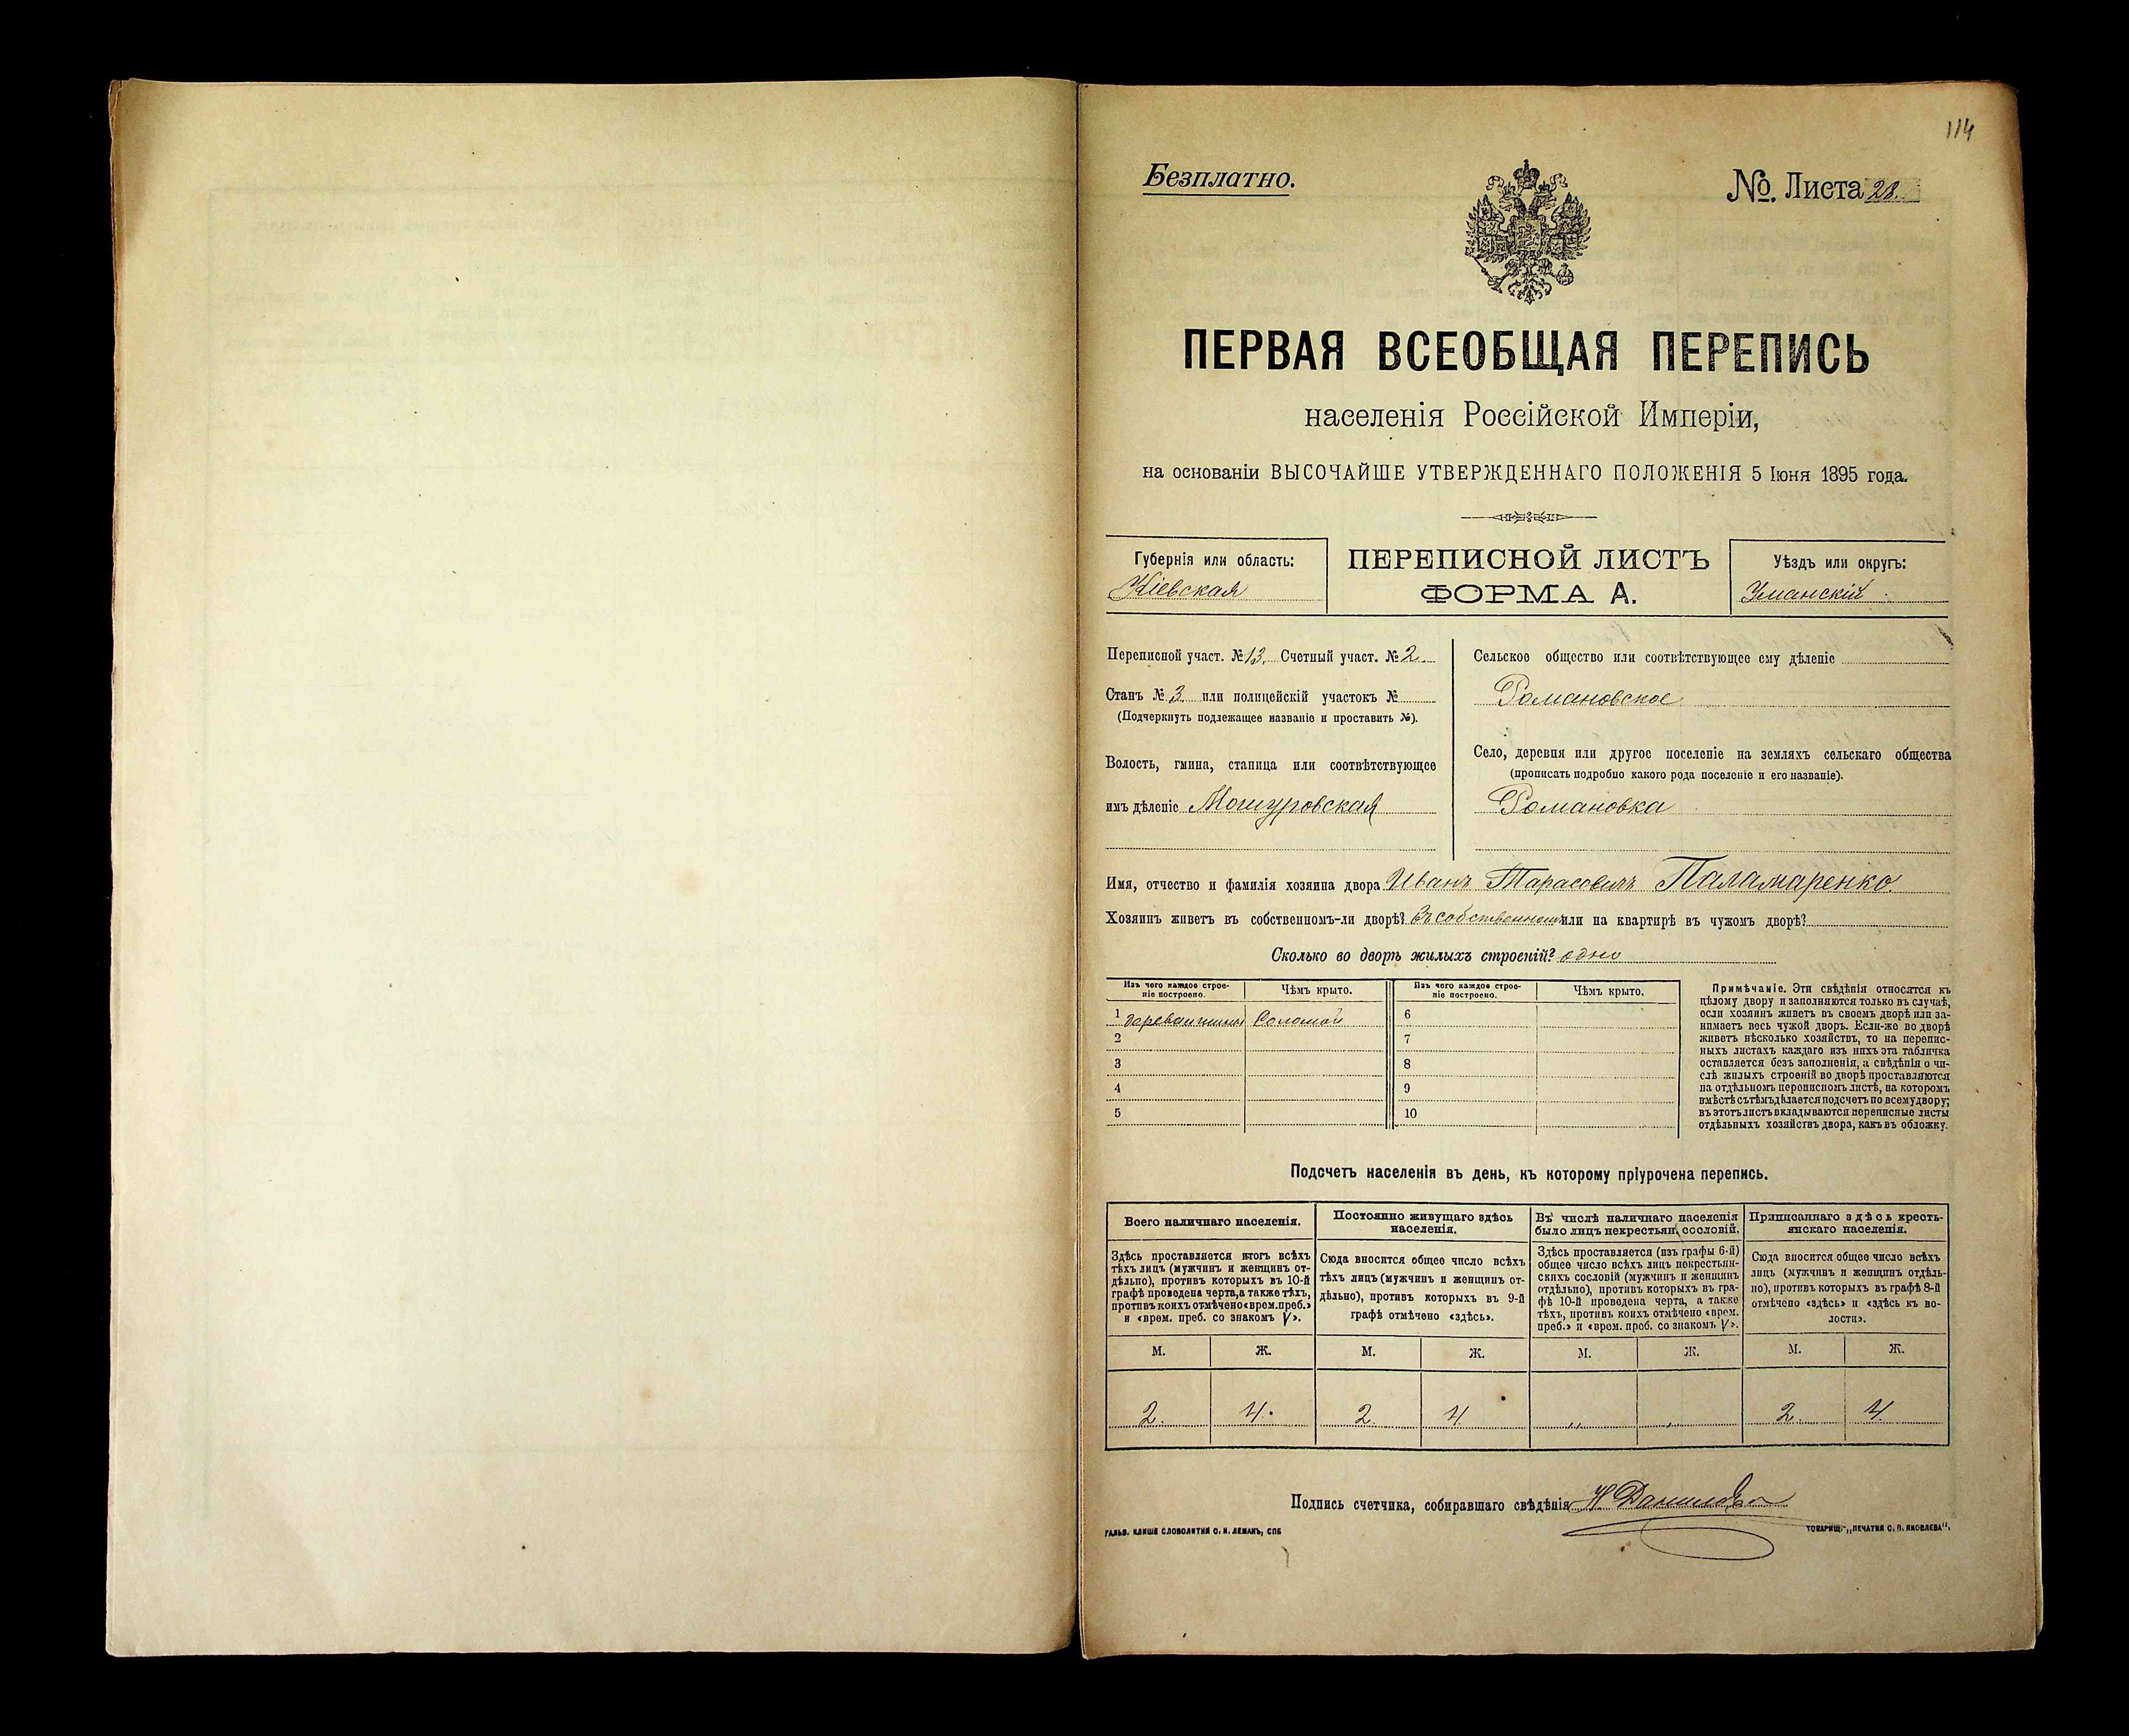 114
Безплатно.
№. Листа 28.
ПЕРВАЯ ВСЕОБЩАЯ ПЕРЕПИСЬ
населенія Россійской Имперіи,
на основаніи ВЫСОЧАЙШЕ УТВЕРЖДЕННАГО ПОЛОЖЕНІЯ 5 Іюня 1895 года.
Губернія или область:
Кіевская
ПЕРЕПИСНОЙ ЛИСТЪ
ФОРМА А.
Уѣздъ или округъ:
Уманскій
Переписной участ. № 13. Счетный участ. № 2.
Станъ № 3 или полицейскій участокъ №
(Подчеркнуть подлежащее названіе и проставить №).
Волость, гмина, станица или соотвѣтствующее
имъ дѣленіе Мошуровская
Сельское общество или соотвѣтствующее ему дѣленіе
Романовское
Село, деревня или другое поселеніе на земляхъ сельскаго общества
(прописать подробно какого рода поселеніе и его названіе).
Романовка
Имя, отчество и фамилія хозяина двора Иванъ Тарасовичъ Паламаренко
Хозяинъ живетъ въ собственномъ-ли дворѣ? Въ собственномъ или на квартирѣ въ чужомъ дворѣ?
Сколько во дворѣ жилыхъ строеній? одно
Изъ чего каждое строе-
ніе построено.
Чѣмъ крыто.
Изъ чего каждое строе-
ніе построено.
Чѣмъ крыто.
1 Соломой
2
3
4
5
6
7
8
9
10
Примѣчаніе. Эти свѣдѣнія относятся къ
цѣлому двору и заполняются только въ случаѣ,
если хозяинъ живетъ въ своемъ дворѣ или за-
нимаетъ весь чужой дворъ. Если-же во дворѣ
живетъ нѣсколько хозяйствъ, то на перепис-
ныхъ листахъ каждаго изъ нихъ эта табличка
оставляется безъ заполненія, а свѣдѣнія о чи-
слѣ жилыхъ строеній во дворѣ проставляются
на отдѣльномъ переписномъ листѣ, на которомъ
вмѣстѣ съ тѣмъ дѣлается подсчетъ по всему двору;
въ этотъ листъ вкладываются переписные листы
отдѣльныхъ хозяйствъ двора, какъ въ обложку.
Подсчетъ населенія въ день, къ которому пріурочена перепись.
Всего наличнаго населенія.
Здѣсь проставляется итогъ всѣхъ
тѣхъ лицъ (мужчинъ и женщинъ от-
дѣльно), противъ которыхъ въ 10-й
графѣ проведена черта, а также тѣхъ,
противъ коихъ отмѣчено «врем. преб.»
и «врем. преб. со знакомъ V».
М. Ж.
2. 4.
Постоянно живущаго здѣсь
населенія.
Сюда вносится общее число всѣхъ
тѣхъ лицъ (мужчинъ и женщинъ от-
дѣльно), противъ которыхъ въ 9-й
графѣ отмѣчено «здѣсь».
М. Ж.
2. 4
Въ числѣ наличнаго населенія
было лицъ некрестьян. сословій.
Здѣсь проставляется (изъ графы 6-й)
общее число всѣхъ лицъ некрестьян-
скихъ сословій (мужчинъ и женщинъ
отдѣльно), противъ которыхъ въ гра-
фѣ 10-й проведена черта, а также
тѣхъ, противъ коихъ отмѣчено «врем.
преб.» и «врем. преб. со знакомъ V».
М. Ж.
„ „
Приписаннаго здѣсь кресть-
янскаго населенія.
Сюда вносится общее число всѣхъ
лицъ (мужчинъ и женщинъ отдѣль-
но), противъ которыхъ въ графѣ 8-й
отмѣчено «здѣсь» и «здѣсь въ во-
лости».
М. Ж.
2. 4.
Подпись счетчика, собиравшаго свѣдѣнія
ГАЛЬВ. КЛИШЕ СЛОВОЛИТНИ О. И. ЛЕМАНЪ, СПБ
ТОВАРИЩ. „ПЕЧАТНЯ С. П. ЯКОВЛЕВА".